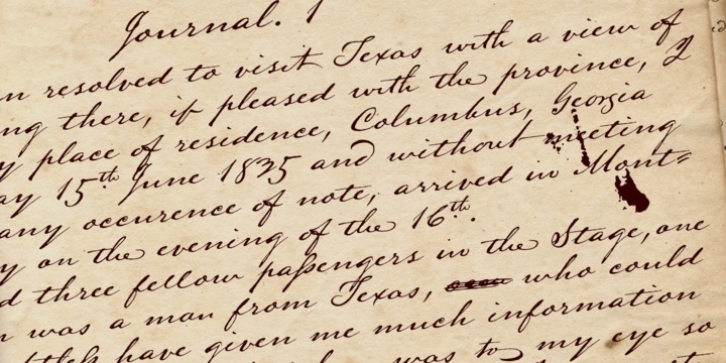 Journal. 1
n resolved to visit Texas with a view of
ng there, if pleased with the province, I
y place of residence, Columbus, Georgia
ay 15th June 1835 and without meeting
any occurence of note, arrived in Mont=
y on the evening of the 16th.
d three fellow passengers in the Stage, one
n was a man from Texas, who could
have given me much information
was to my eye so